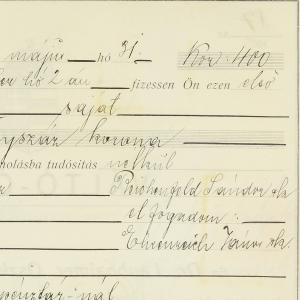 május hó 31. Kor. 400
hó 2 án fizessen Ön ezen első
saját
yszáz korona
molásba tudósítás nélkül
Reichenfeld Sándor sk
elfogadom:
Ehrenreich János sk.
pénztár-nál